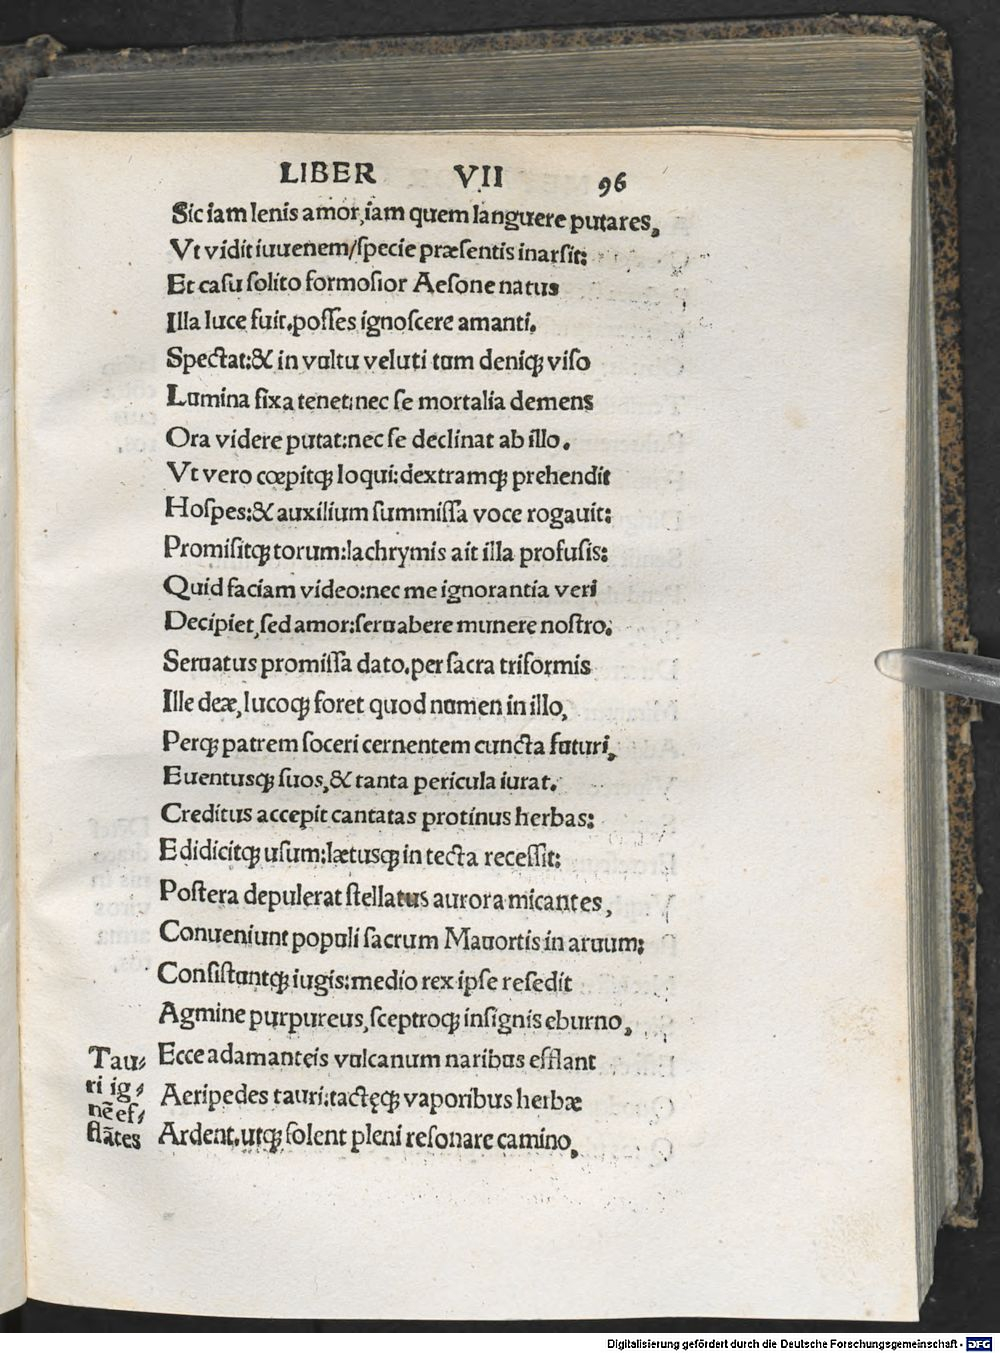 LIBER VII 96
Sic iam lenis amor, iam quem languere putares,
Vt vidit iuvenem/specie præsentis inarsit:
Et casu solito formosior Aesone natus
Illa luce fuit. posses ignoscere amanti.
Spectat:& in vultu veluti tum deniqꝫ viso
Lumina fixa tenet:nec se mortalia demens
Ora videre putat:nec se declinat ab illo.
Vt vero cœpitqꝫ loqui:dextramqꝫ prehendit
Hospes:& auxilium summissa voce rogavit:
Promisitqꝫ torum:lachrymis ait illa profusis:
Quid faciam video:nec me ignorantia veri
Decipiet, sed amor:servabere munere nostro.
Servatus promissa dato. per sacra triformis
Ille deæ, lucoqꝫ foret quod numen in illo,
Perqꝫ patrem soceri cernentem cuncta futuri,
Eventusqꝫ suos,& tanta pericula iurat.
Creditus accepit cantatas protinus herbas:
Edidicitqꝫ usum:lætusqꝫ in tecta recessit:
Postera depulerat stellatus aurora micantes,
Conveniunt populi sacrum Mavortis in arvum:
Consistuntqꝫ iugis:medio rex ipse resedit
Agmine purpureus, sceptroqꝫ insignis eburno,
Ecce adamanteis vulcanum naribus efflant
Aeripedes tauri:tactęqꝫ vaporibus herbæ
Ardent. utqꝫ solent pleni resonare camino,
Tau-
ri ig-
nẽ ef-
flãtes
Digitalisierung gefördert durch die Deutsche Forschungsgemeinschaft - DFG